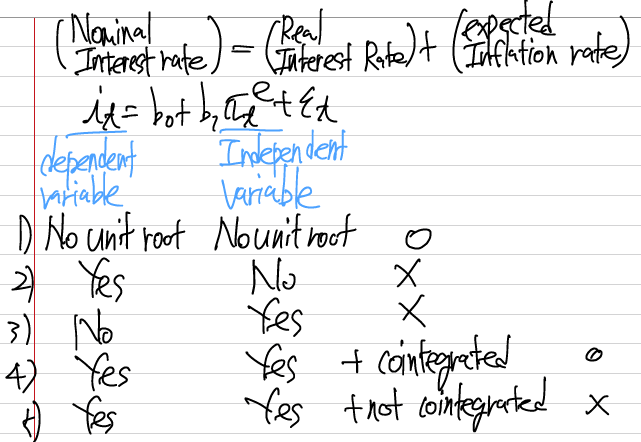 (Nominal Interest rate) = (Real Interest Rate) + (expected Inflation rate)
iₜ = b₀ + b₁ πₜᵉ + εₜ
dependent variable Independent variable
1) No unit root No unit root O
2) Yes No X
3) No Yes X
4) Yes Yes + cointegrated O
5) Yes Yes + not cointegrated X